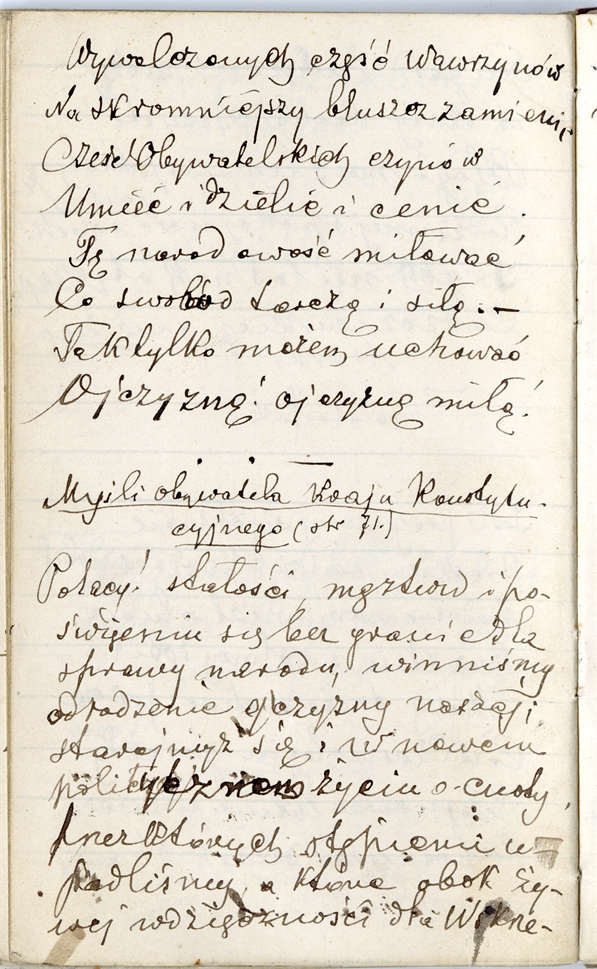 Wywalczonych część wawrzynów
Na skromniejszy bluszcz zamieni,
Cześć Obywatelskich czynów
Umieć i dzielić i cenić.
Tę narodowość miłować
Co swobód tarczą i siłą. —
Tak tylko możem uchować
Ojczyznę! ojczyznę miłą!
Myśli obywatela Kraju Konstytu-
cyjnego (str 71.)
Polacy! stałości, męztwu i po-
święceniu się bez granic dla
sprawy narodu, winniśmy
odrodzenie ojczyzny naszej;
starajmyż się i w nowem
politycznem życiu o cnoty,
bez których stępieni u-
padliśmy, a które obok ży-
wej wdzięczności dla Wskrze-